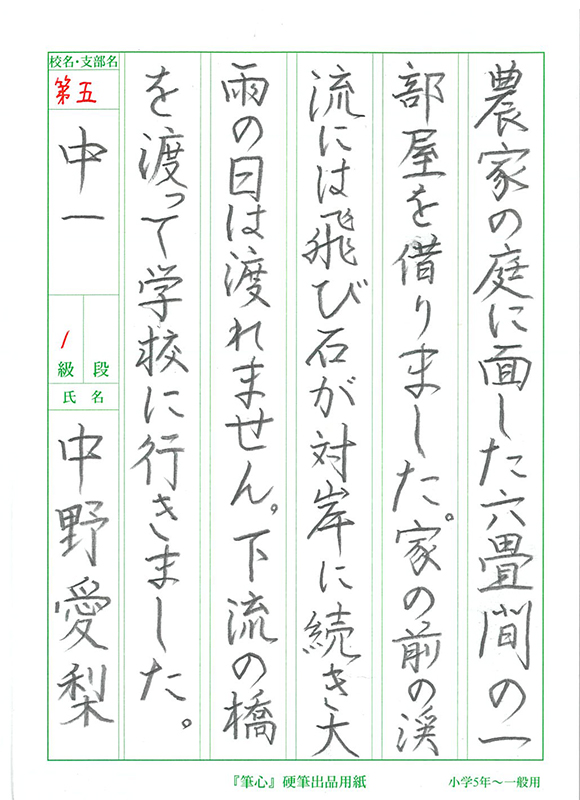 農家の庭に面した六畳間の一
部屋を借りました。家の前の渓
流には飛び石が対岸に続き大
雨の日は渡れません。下流の橋
を渡って学校に行きました。
校名・支部名
第五
中一
1
級 段
氏名
中野愛梨
『筆心』硬筆出品用紙
小学5年～一般用